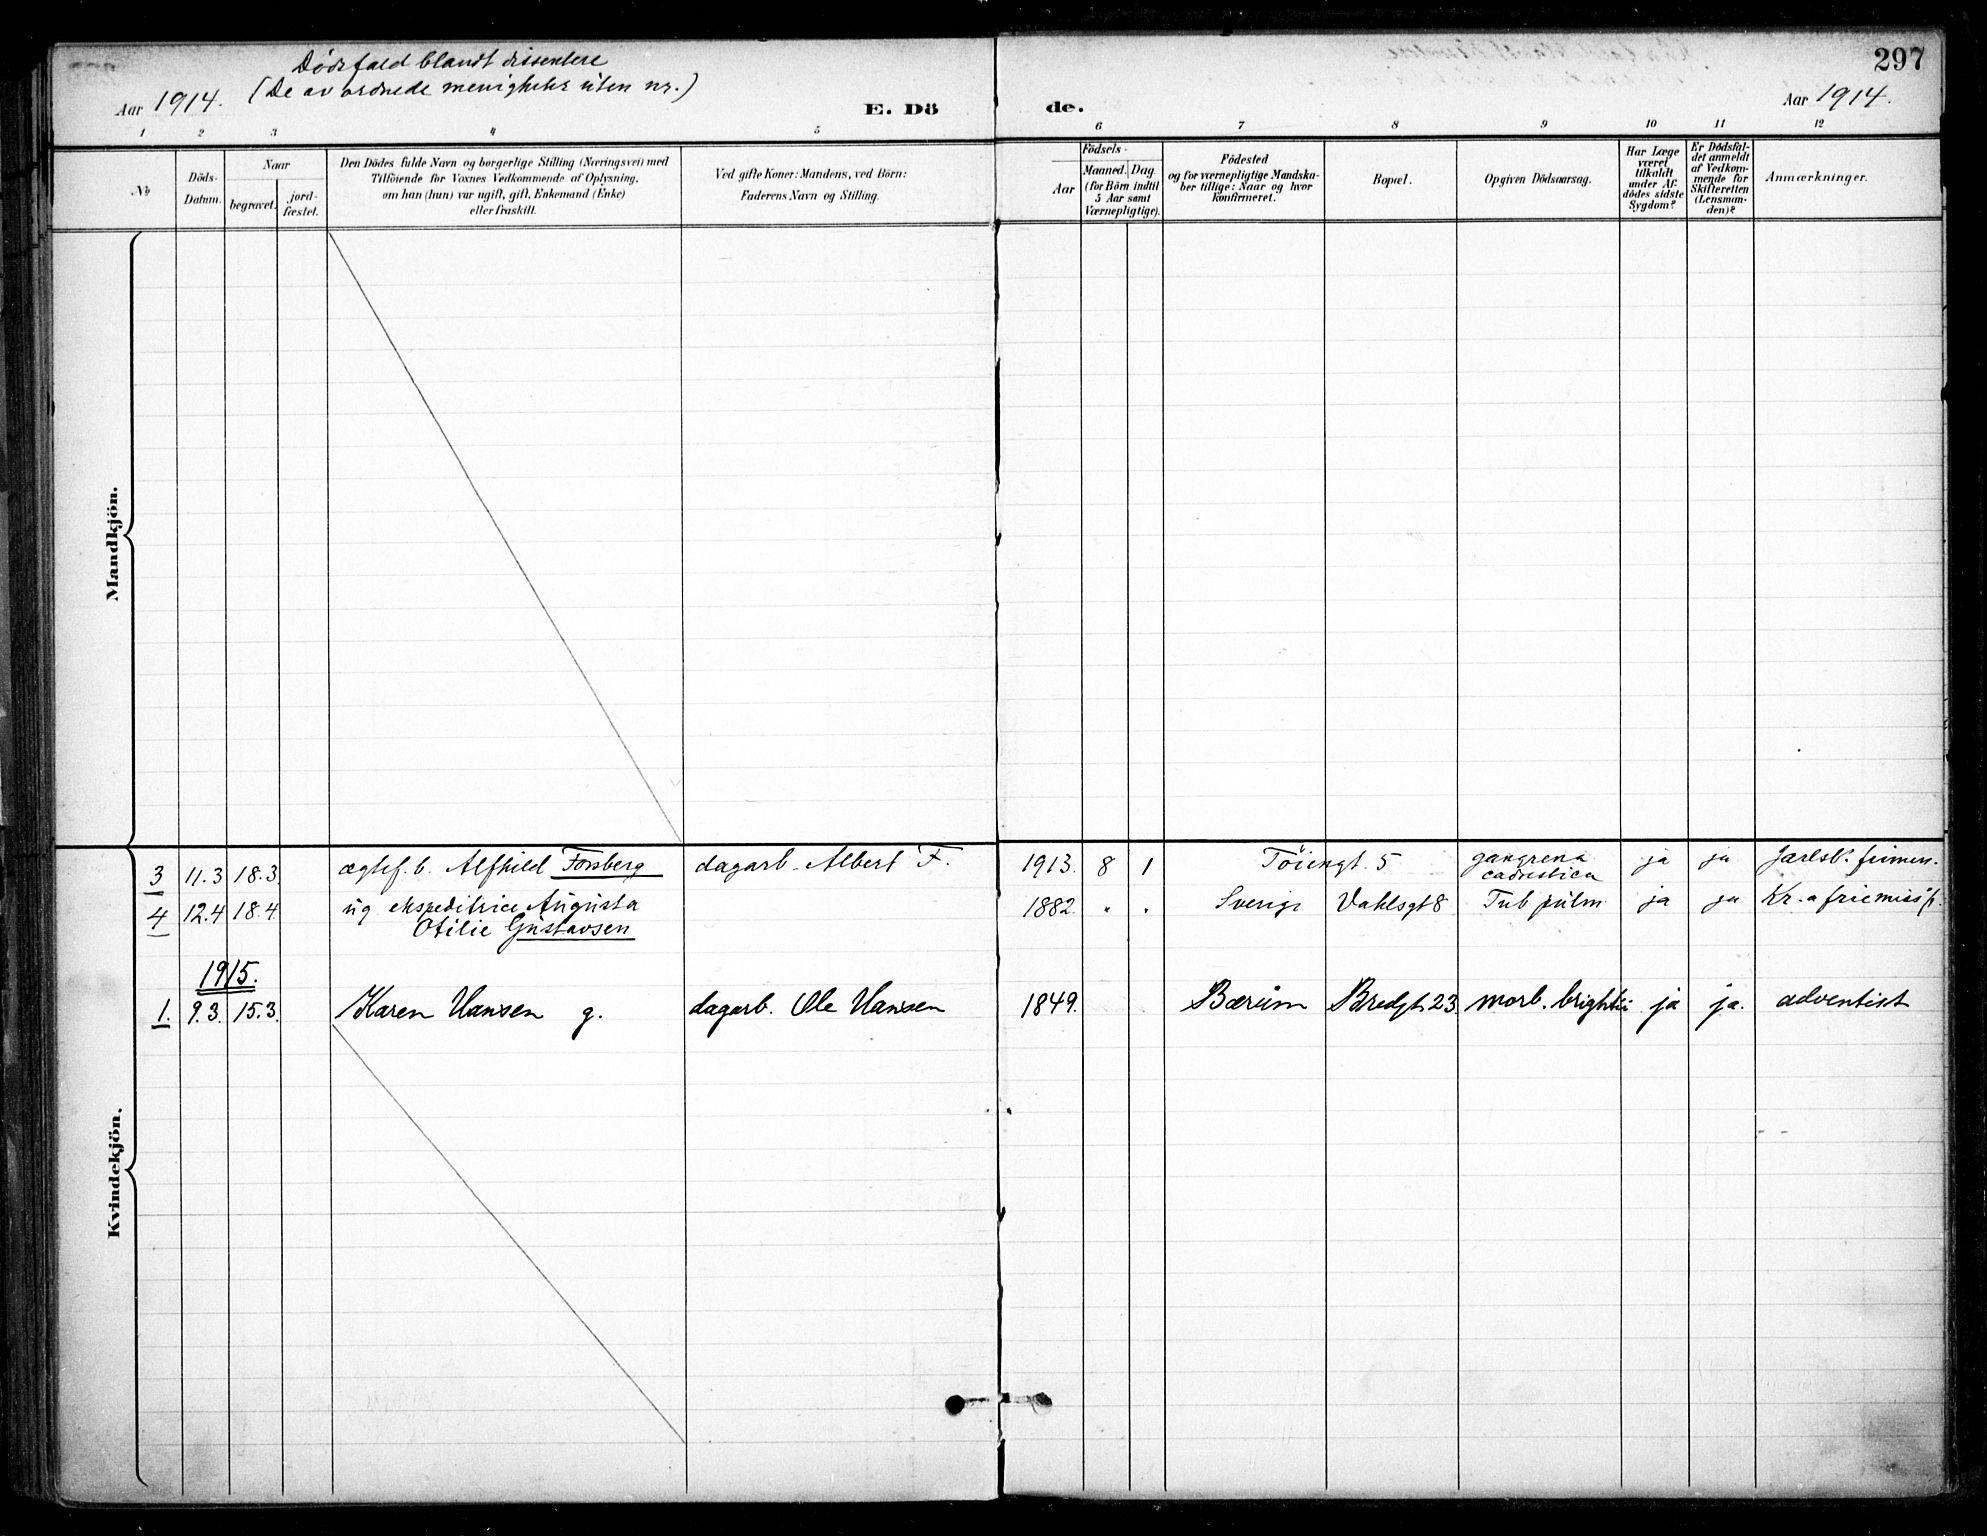 297
Dødsfald blandt dissentere
Aar 1914. (De av ordnede menigheter uten nr.)
E. Dö de.
Aar 1914.
1 2 3 4 5 6 7 8 9 10 11 12
No
Döds-Datum.
Naar
begravet.
jordfæstet.
Den Dödes fulde Navn og borgerlige Stilling (Næringsvei) med
Tilföiende for Voxnes Vedkommende af Oplysning,
om han (hun) var ugift, gift, Enkemand (Enke)
eller fraskilt.
Ved gifte Koner: Mandens, ved Börn:
Faderens Navn og Stilling.
Födsels-
Aar
Maaned. Dag
(for Börn indtil
5 Aar samt
Værnepligtige).
Födested
og for værnepligtige Mandska-
ber tillige: Naar og hvor
konfirmeret.
Bopæl.
Opgiven Dödsaarsag.
Har Læge
været
tilkaldt
under Af-
dödes sidste
Sygdom?
Er Dödsfal-
det anmeldt
af Vedkom-
mende for
Skifteretten
(Lensman-
den)?
Anmærkninger.
Mandkjön.
Kvindekjön.
3 11.3 18.3 ægtef. b. Alfhild Forsberg dagarb. Albert F. 1913. 8 1 Töiengt. 5 gangrena ja ja Jarlsb. frimen.
4 12.4 18.4 ug ekspeditrice Augusta 1882. " " Sverige Vahlsgt 8 Tub pulm ja ja Kr.a friemiss.f.
Otilie Gustavsen
1915.
1. 9.3. 15.3. Karen Hansen g. dagarb. Ole Hansen 1849. Bærum Bredgt. 23. morb. brightii ja ja. adventist